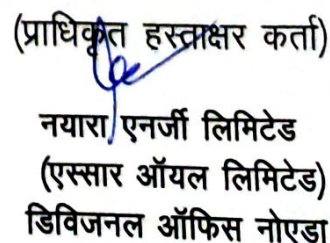 (प्राधिकृत हस्ताक्षर कर्ता)
नयारा एनर्जी लिमिटेड
(एस्सार ऑयल लिमिटेड)
डिविजनल ऑफिस नोएडा